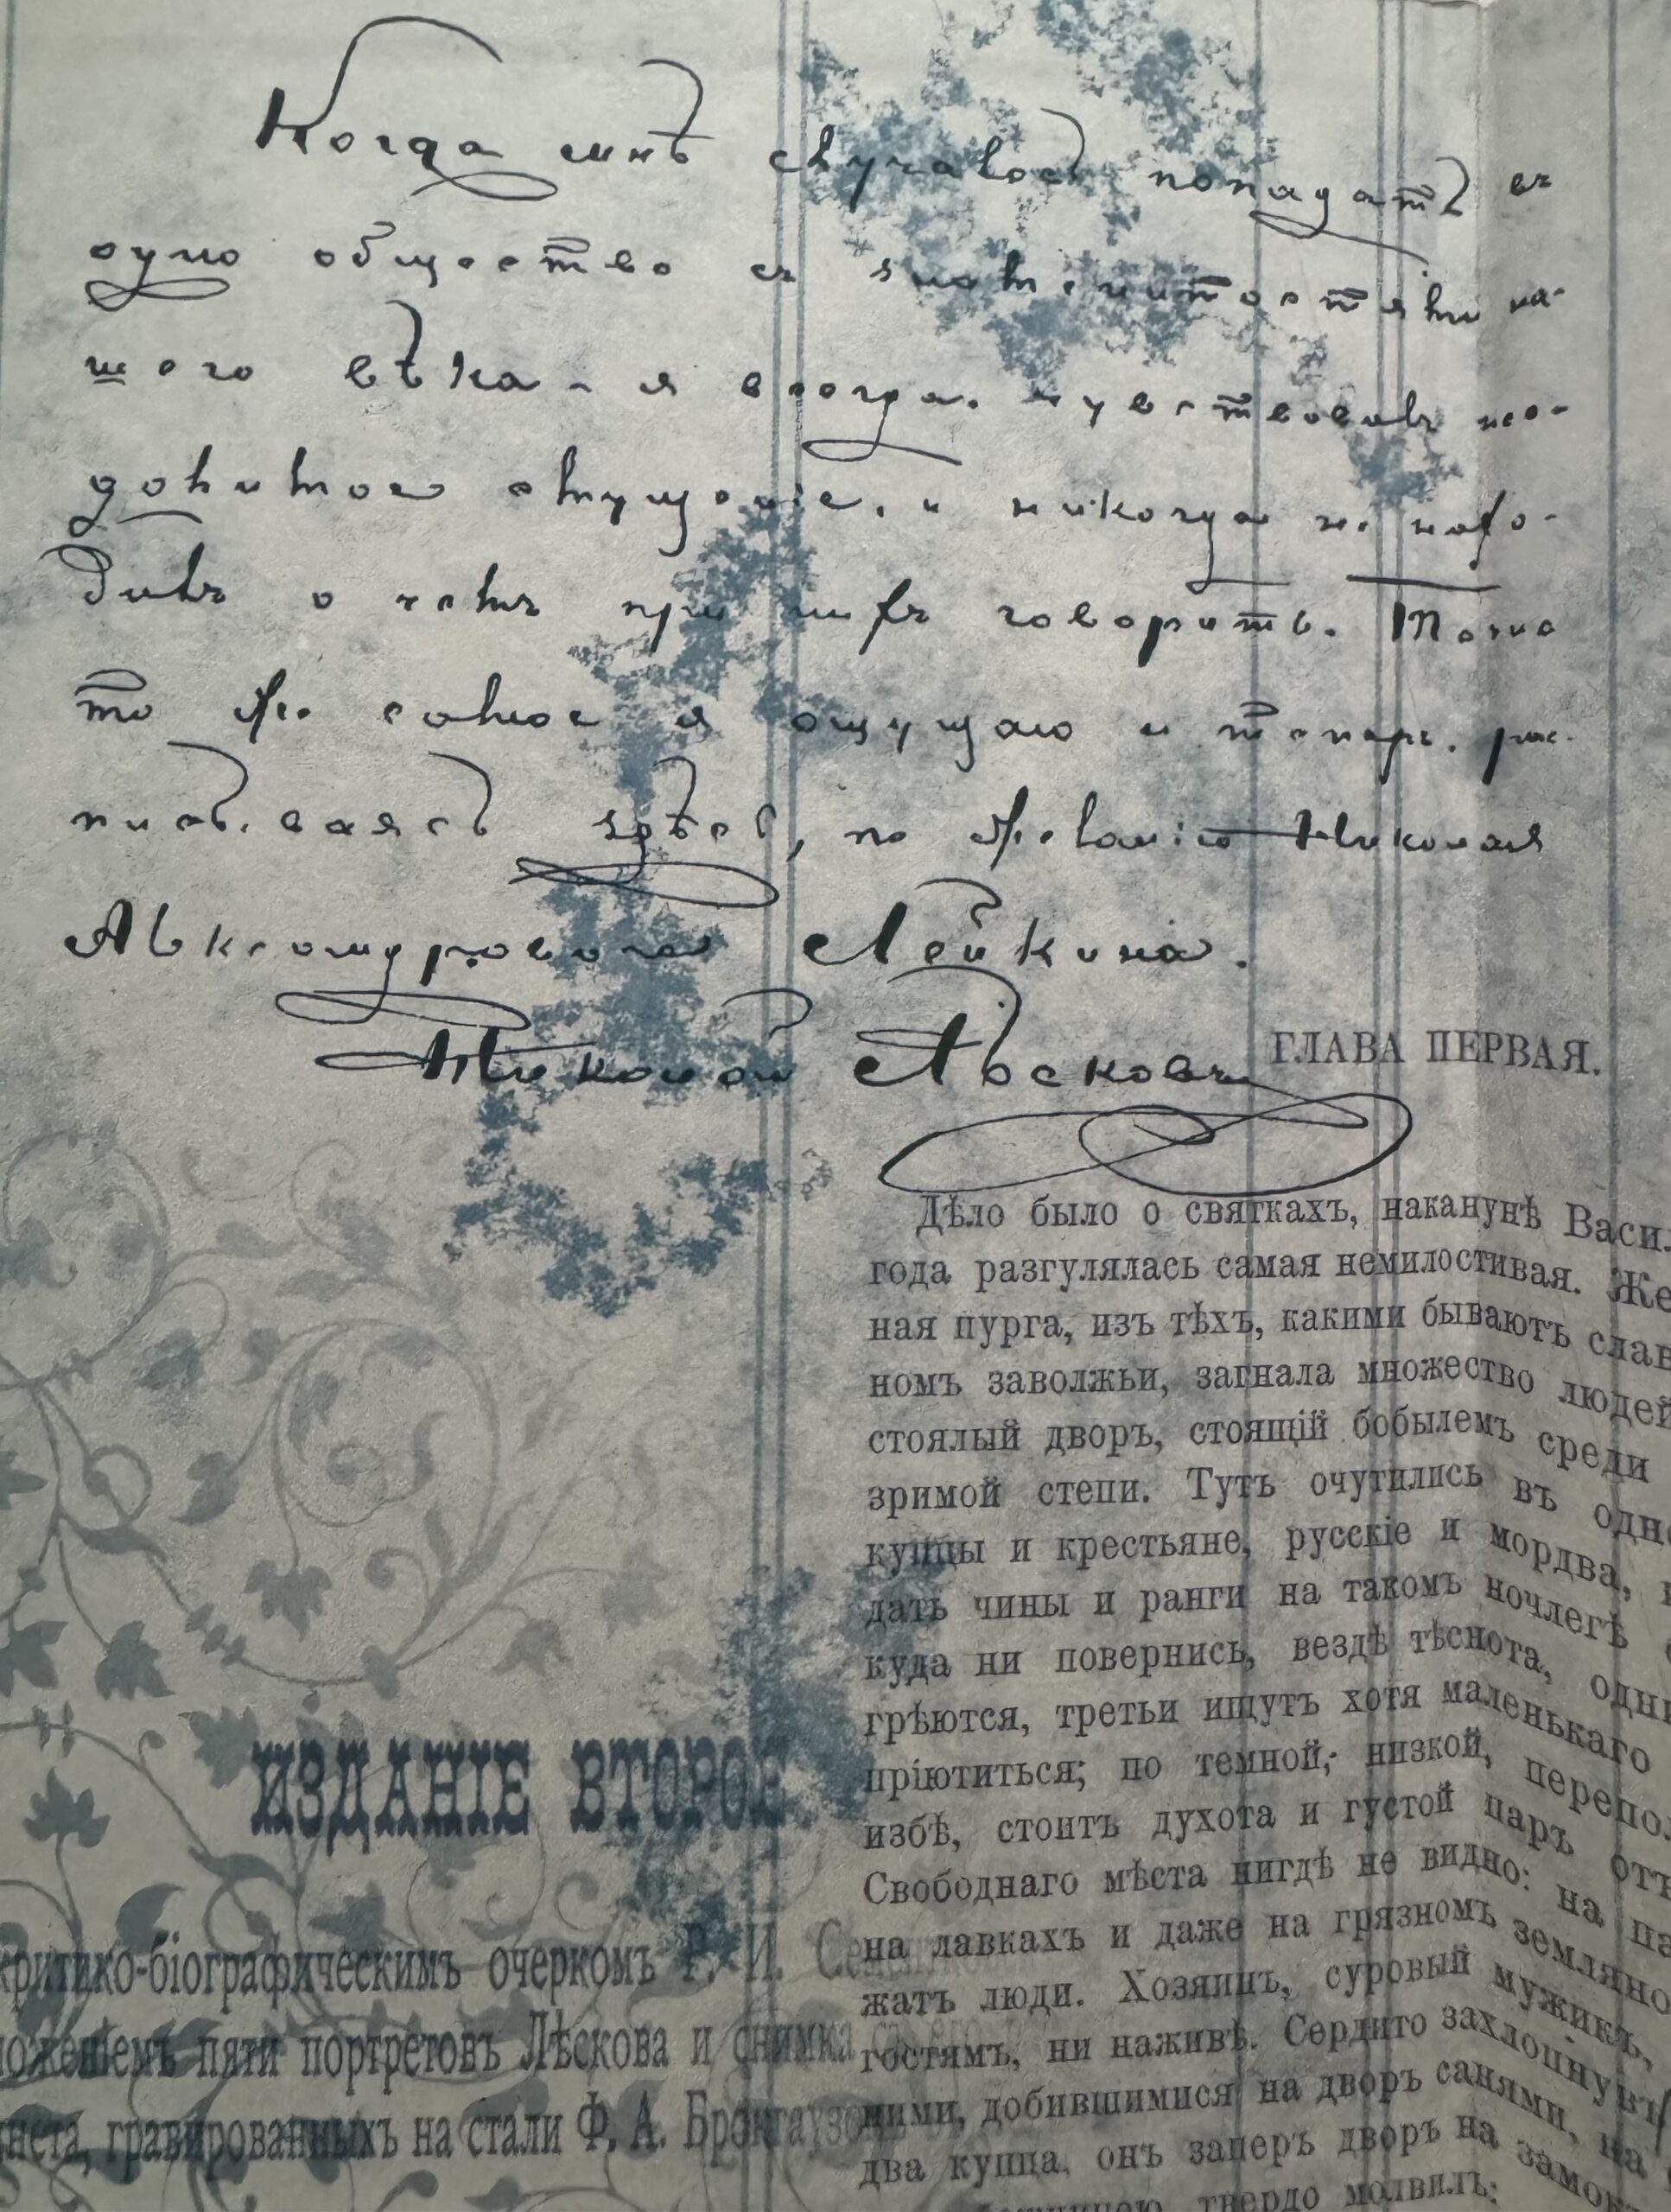 Когда мнѣ случалось попадать въ
одно общество съ знаменитостями на-
шего вѣка – я всегда чувствовалъ не-
ощущеніе, и никогда не нахо-
дилъ о чемъ при нихъ говорить. Точно
то же самое я ощущаю и теперь, рас-
писываясь здѣсь, по желанію Николая
Александровича Лейкина.
Николай Лѣсковъ
ГЛАВА ПЕРВАЯ.
Дѣло было о святкахъ, наканунѣ Васил
года разгулялась самая немилостивая. Же
ная пурга, изъ тѣхъ, какими бываютъ слав
номъ заволжьи, загнала множество людей
стоялый дворъ, стоящій бобылемъ среди
зримой степи. Тутъ очутились въ одно
купцы и крестьяне, русскіе и мордва,
дать чины и ранги на такомъ ночлегѣ
куда ни повернись, вездѣ тѣснота, одни
грѣются, третьи ищутъ хотя маленькаго
пріютиться; по темной, низкой, перепол
избѣ, стоитъ духота и густой паръ отъ
Свободнаго мѣста нигдѣ не видно: на па
на лавкахъ и даже на грязномъ земляно
жатъ люди. Хозяинъ, суровый мужикъ,
гостямъ, ни наживѣ. Сердито захлопнувъ
ними, добившимися на дворъ санями, на
два купца, онъ заперъ дворъ на замок
твердо молвилъ:
ИЗДАНІЕ ВТОРОЕ
критико-біографическимъ очеркомъ Р. И. Се
ложеніемъ пяти портретовъ Лѣскова и снимка
инета, гравированныхъ на стали Ф. А. Брокгаузо